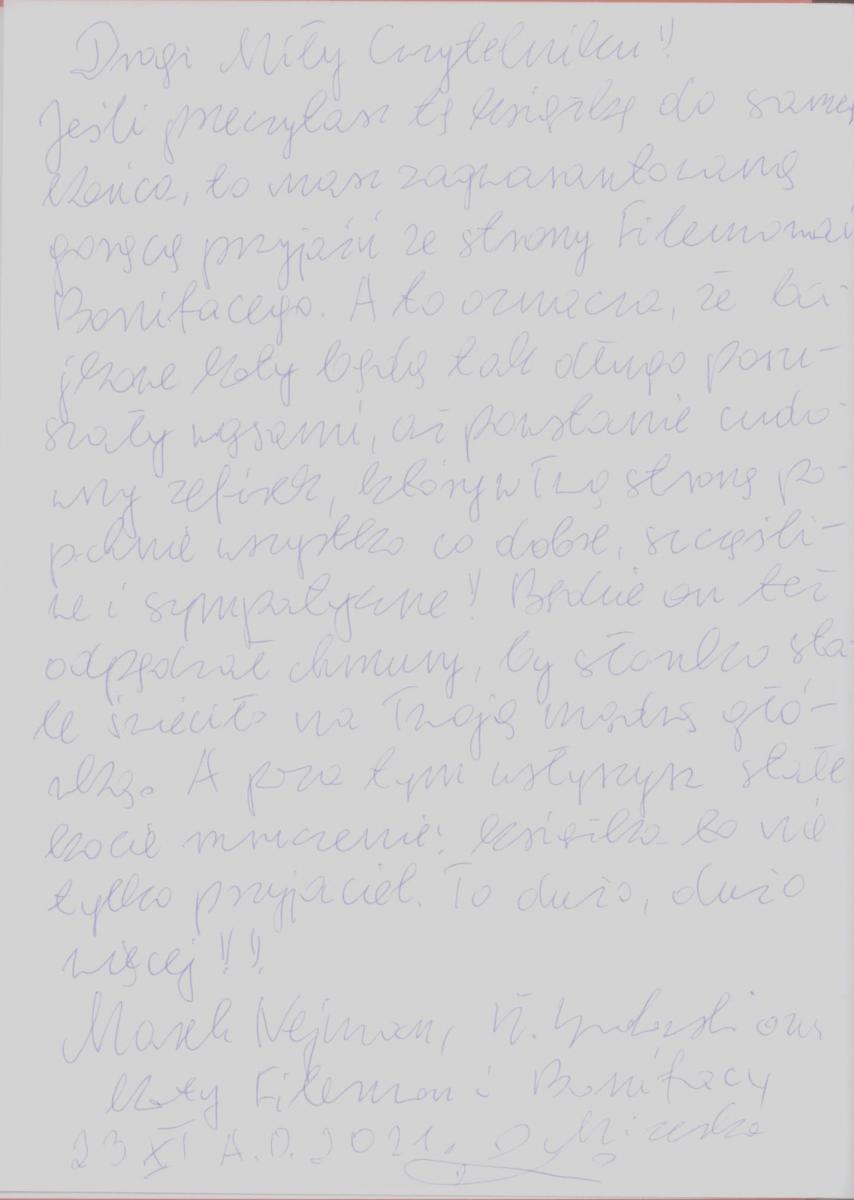 Drogi Miły Czytelniku!!
Jeśli przeczytasz tę książkę do same
końca, to masz zagwarantowaną
gorącą przyjaźń ze strony Filemona i
Bonifacego. A to oznacza, że ba-
jkowe koty będą tak długo poru-
szały wąsami, aż powstanie cudo-
wny zefirek, który w Twą stronę po-
pchnie wszystko co dobre, szczęśli-
we i sympatyczne! Będzie on też
odpędzał chmury, by słonko sta-
le świeciło na Twoją mądrą głó-
wkę. A poza tym usłyszysz stałe
kocie mruczenie: książka to nie
tylko przyjaciel. To dużo, dużo
więcej!!!
Marek Nejman, oraz
Koty Filemon i Bonifacy
23 XI A.D. 2021.